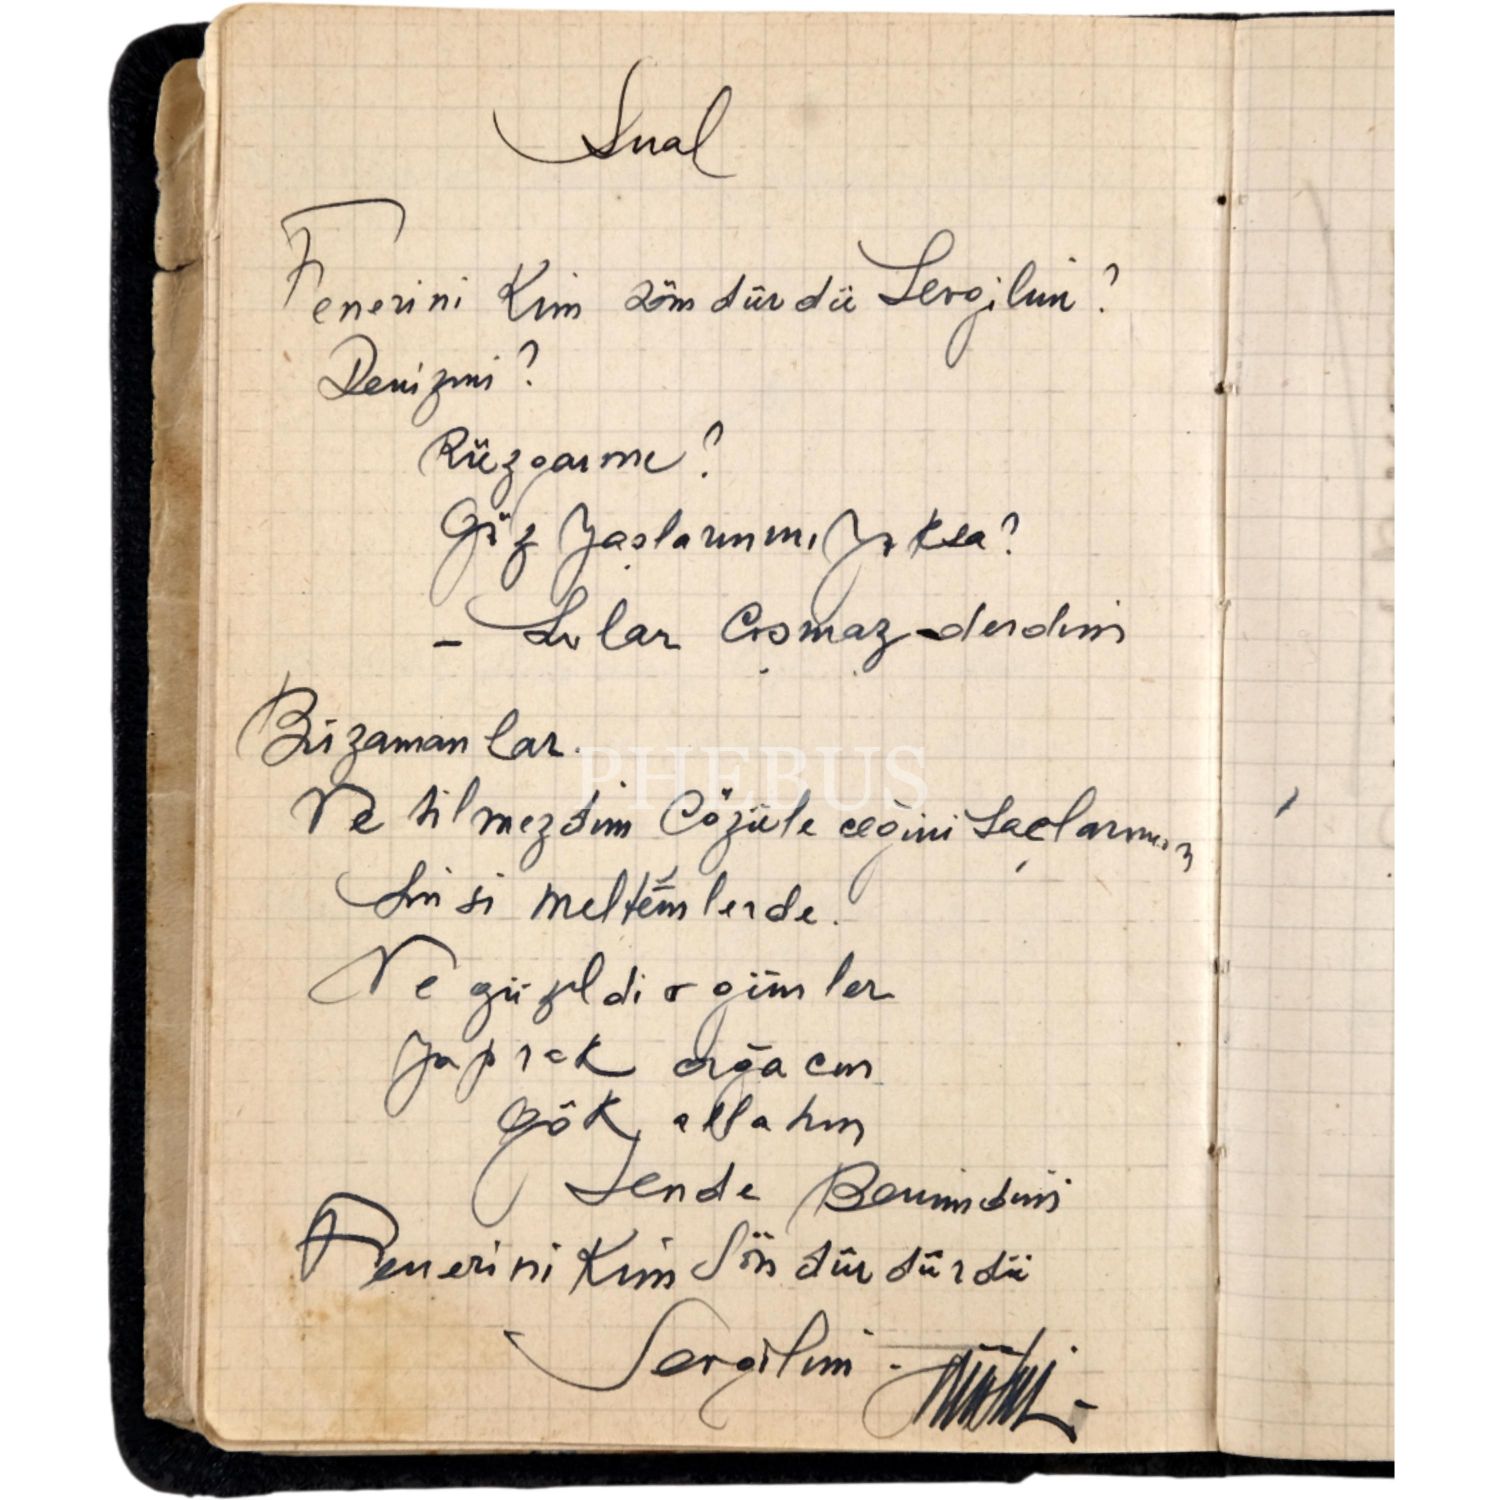 Sual
Fenerini Kim söndürdü Sevgilim?
Denizmi?
Rüzgarmı?
Göz Yaşlarınmı Yoksa?
- Sular Coşmaz derdim
Bir zamanlar.
Ne bilmezdim Çözüleceğini Saçlarının
Sinsi meltemlerde.
Ne güzeldi o günler
Yaprak ağacın
Gök allahın
Sende Benimdin
Fenerini Kim Söndürdü
Sevgilim -
PHEBUS